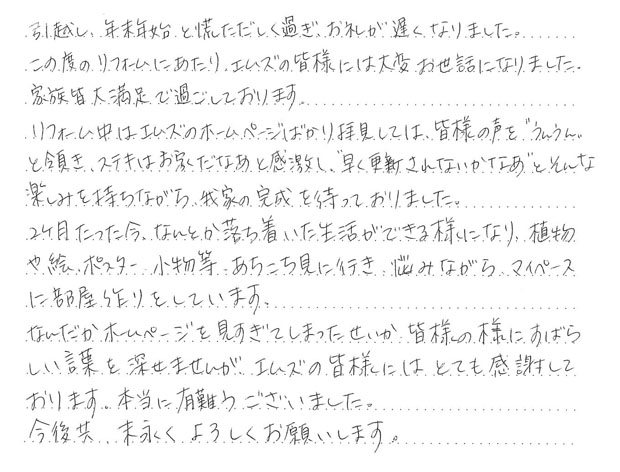 引越し、年末年始と慌ただしく過ぎ、お礼が遅くなりました。
この度のリフォームにあたり、エムズの皆様には大変お世話になりました。
家族皆大満足で過ごしております。
リフォーム中はエムズのホームページばかり拝見しては、皆様の声を"うんうん"
と頷き、ステキなお家だなあと感激し、"早く更新されないかなあ"とそんな
楽しみを持ちながら、我家の完成を待っておりました。
2ヶ月たった今、なんとか落ち着いた生活ができる様になり、植物
や絵、ポスター、小物等、あちこち見に行き、悩みながら、マイペース
に部屋作りをしています。
なんだかホームページを見すぎてしまったせいか、皆様の様にすばら
しい言葉を探せませんが、エムズの皆様にはとても感謝して
おります。本当に有難うございました。
今後共、末永くよろしくお願いします。